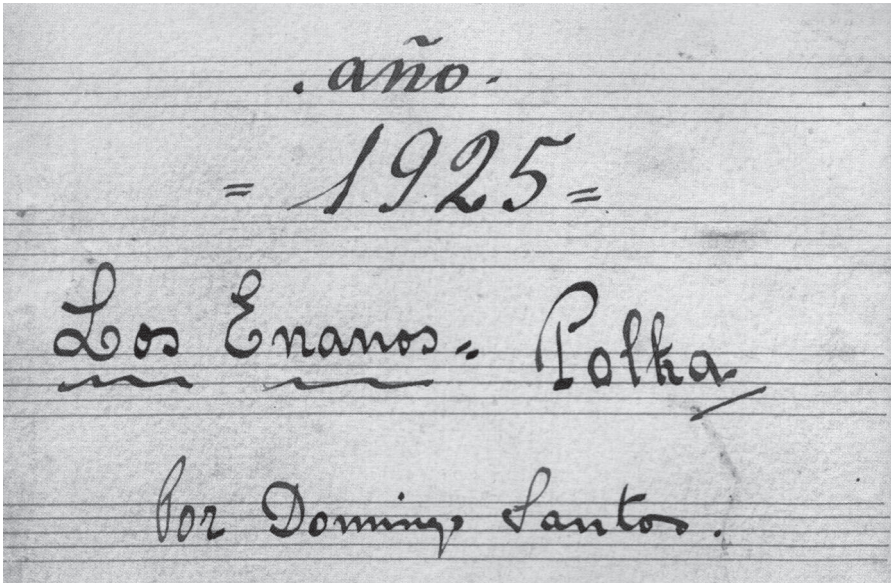 . año.
= 1925 =
Los Enanos = Polka
Por Domingo Santos.